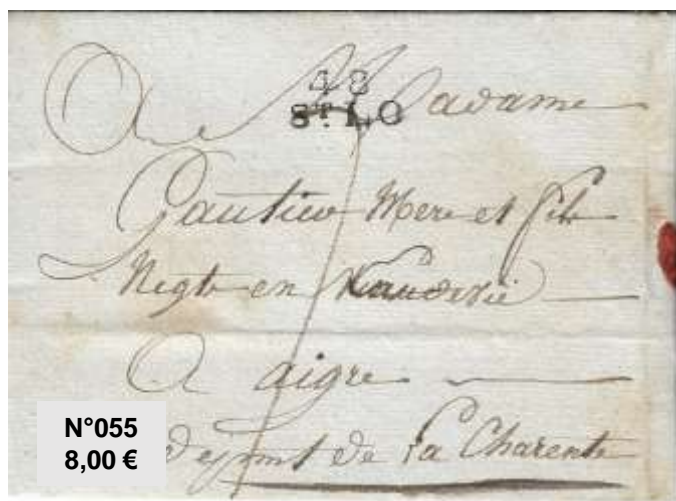 48
ST. LO
A Madame
Gautier Mere et fils
Negts en
A aigre
Depmt de la Charente
N°055
8,00 €